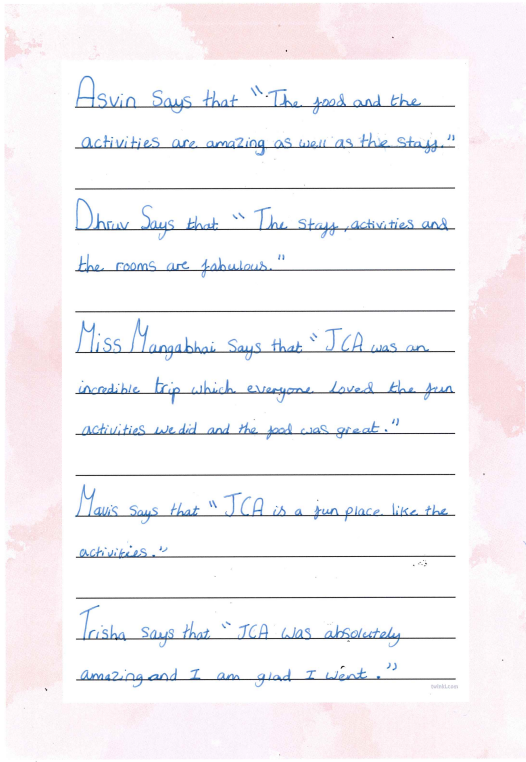 Asvin Says that "The food and the
activities are amazing as well as the staff."
Dhruv Says that "The staff, activities and
the rooms are fabulous."
Miss Mangabhai Says that "JCA was an
incredible trip which everyone loved the fun
activities we did and the food was great."
Mavis says that "JCA is a fun place like the
activities."
Trisha says that "JCA was absolutely
amazing and I am glad I went."